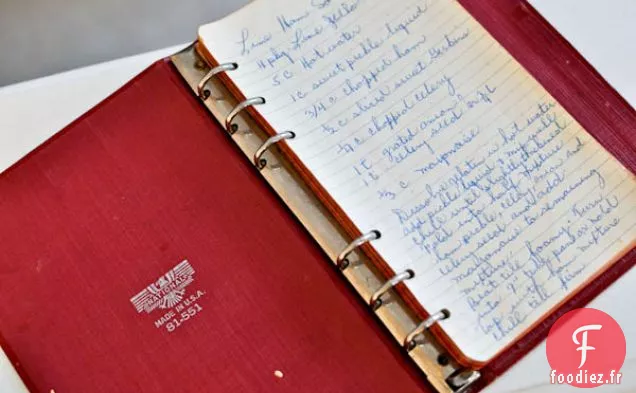 Lime Ham Salad
4 pkg Lime Jello
5 c Hot water
1 c sweet pickle liquid
3/4 c chopped ham
1/2 c sliced sweet Gerkins
1/4 c chopped celery
1 t grated onion
1 t celery seed salt
2/3 c mayonaise
Dissolve gelatin in hot water
add pickle liquid &
Chill until slightly thickened
Fold into half mixture
ham, pickle, celery, onion and
celery seed and add
mayonaise to remaining
mixture.
Beat till foamy. Turn
into 9" pan or mold
top with mixture
chill till firm
NATIONAL
MADE IN U.S.A.
81-551
F
foodiez.fr